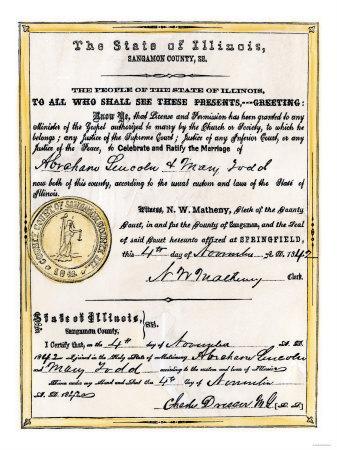 The State of Illinois,
SANGAMON COUNTY, SS.
THE PEOPLE OF THE STATE OF ILLINOIS,
TO ALL WHO SHALL SEE THESE PRESENTS,—GREETING:
Know Ye, that License and Permission has been granted to any
Minister of the Gospel authorized to marry by the Church or Society, to which he
belongs; any Justice of the Supreme Court; Justice of any Inferior Court, or any
Justice of the Peace, to Celebrate and Ratify the Marriage of
Abraham Lincoln & Mary Todd
now both of this county, according to the usual custom and laws of the State of
Illinois.
Witness, N. W. Matheny, Clerk of the County
Court, in and for the County of Sangamon, and the Seal
of said Court hereunto affixed at SPRINGFIELD,
this 4th day of November A. D. 1842
N W Matheny Clerk.
COUNTY COURT OF SANGAMON COUNTY ILL
State of Illinois, } SS.
Sangamon County,
I Certify that, on the 4th day of November A. D.
1842 I joined in the Holy State of Matrimony Abraham Lincoln
and Mary Todd according to the custom and laws of Illinois
Given under my Hand and Seal this 4th day of November
A. D. 1842
Charles Dresser